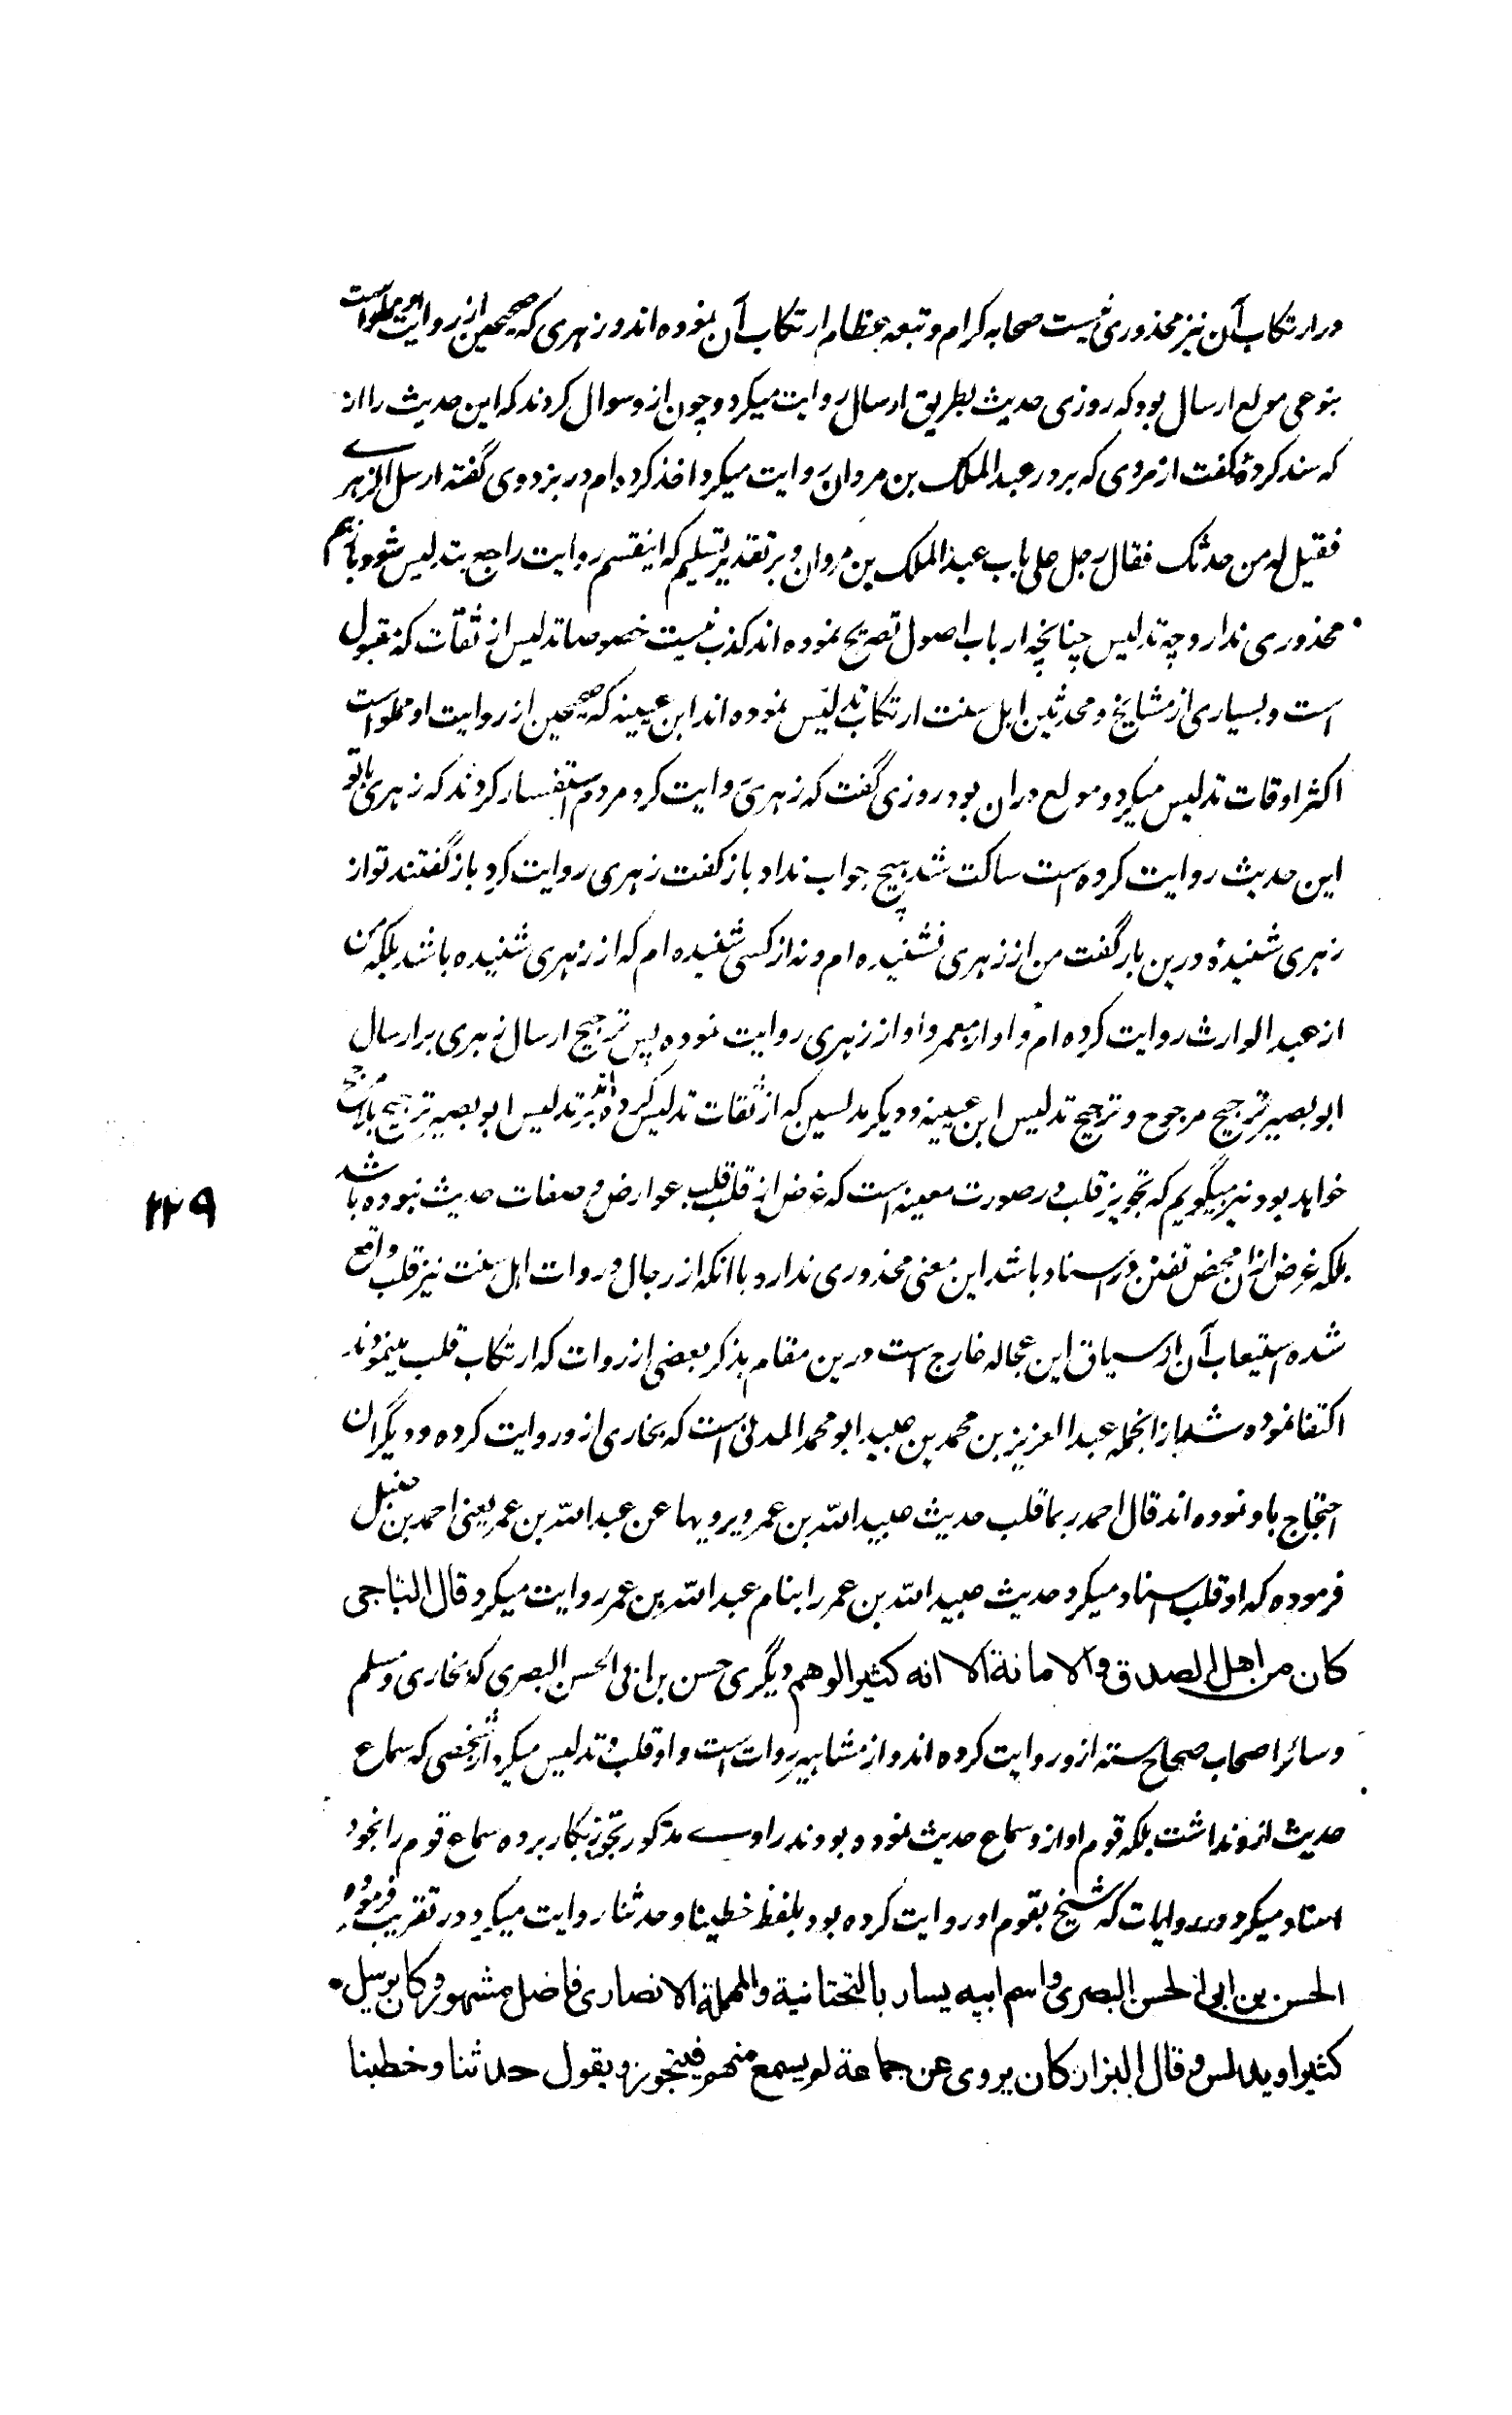 در ارتکاب آن نیز محذوری نیست صحابه کرام و تبعه عظام ارتکاب آن نموده اند و زهری که صحیحین از روایت او مملو است
بنوعی مولع ارسال بود که روزی حدیث بطریق ارسال روایت میکرد و چون ازو سوال کردند که این حدیث را از
که سند کردهٔ گفت از مردی که بر در عبد الملک بن مروان روایت میکرد اخذ کرده ام در بزدوی گفته ارسل الزهرے
فقیل له من حدثک فقال رجل علی باب عبد الملک بن مروان و بر تقدیر تسلیم که اینقسم روایت راجع بتدلیس شود بازهم
محذوری ندارد چه تدلیس چنانچه ارباب اصول تصریح نموده اند کذب نیست خصوصا تدلیس از ثقات که مقبول
است و بسیاری از مشایخ و محدثین اهل سنت ارتکاب تدلیس نموده اند ابن عیینه که صحیحین از روایت او مملو است
اکثر اوقات تدلیس میکرد و مولع دران بود روزی گفت که زهری روایت کرد مردم استفسار کردند که زهری با تو
این حدیث روایت کرده است ساکت شد هیچ جواب نداد باز گفت زهری روایت کرد باز گفتند تو از
زهری شنیدهٔ درین بار گفت من از زهری نشنیده ام و نه از کسی شنیده ام که از زهری شنیده باشد بلکه من
از عبد الوارث روایت کرده ام و او از معمر و او از زهری روایت نموده پس ترجیح ارسال زهری بر ارسال
ابو بصیر ترجیح مرجوح و ترجیح تدلیس ابن عیینه و دیگر مدلسین که از ثقات تدلیس کرده اند بر تدلیس ابو بصیر ترجیح بلا مرجح
خواهد بود نیز میگویم که تجویز قلب در صورت معینه است که غرض از قلب قلب عوارض و صفات حدیث نبوده باشد
بلکه غرض ازان محض تفنن در اسناد باشد این معنی محذوری ندارد با آنکه از رجال و روات اهل سنت نیز قلب واقع
شده استیعاب آن از سیاق این عجاله خارج است درین مقام بذکر بعضی از روات که ارتکاب قلب مینمودند
اکتفا نموده شد ازانجمله عبد العزیز بن محمد بن عبید ابو محمد المدنی است که بخاری ازو روایت کرده و دیگران
احتجاج باو نموده اند قال احمد ربما قلب حدیث عبید الله بن عمر ویرویها عن عبد الله بن عمر یعنی احمد بن حنبل
فرموده که او قلب اسناد میکرد حدیث عبید الله بن عمر را بنام عبد الله بن عمر روایت میکرد قال الباجی
کان من اهل الصدق والامانة الا انه کثیر الوهم دیگری حسن بن ابی الحسن البصری که بخاری و مسلم
و سائر اصحاب صحاح سته ازو روایت کرده اند و از مشاهیر روات است و او قلب و تدلیس میکرد از شخصی که سماع
حدیث ازو نداشت بلکه قوم او ازو سماع حدیث نموده بودند راوے مذکور تجوز بکار برده سماع قوم را بخود
اسناد میکرد و روایات که شیخ بقوم او روایت کرده بود بلفظ خطبنا و حدثنا روایت میکرد در تقریب فرموده
الحسن بن ابی الحسن البصری واسم ابیه یسار بالتحتانیة والمهملة الانصاری فاضل مشهور وکان یرسل
کثیرا ویدلس وقال البزار کان یروی عن جماعة لم یسمع منهم فیتجوز ویقول حدثنا وخطبنا
۲۲۹